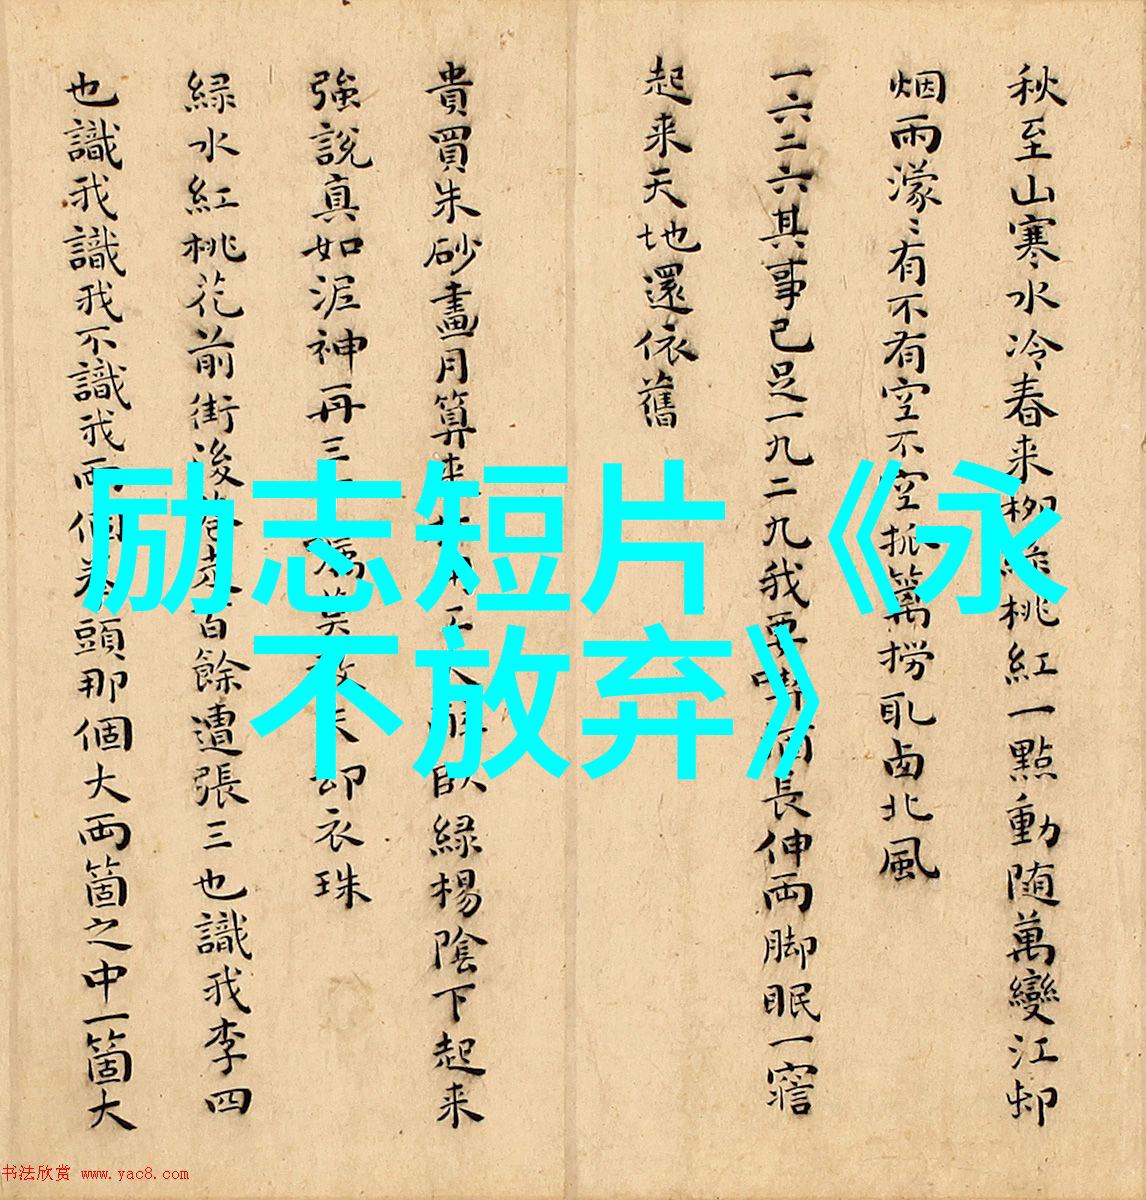 秋至山寒水冷春来柳絲桃紅一點動随萬變江邨
烟雨濛〻有不有空不空抓篱撈取鹵北風
一六二六其事已足一九二九我要長伸兩脚眠一寤
起来天地還依舊
貴買朱砂畫月算来臥緑楊陰下起来
強說真如泥神再三衣珠
緑水紅桃花前街後百餘遭張三也識我李四
也識我識我不識我兩個頭那個大兩箇之中一箇大
励志短片《永
不放弃》
书法欣赏 www.yac8.com